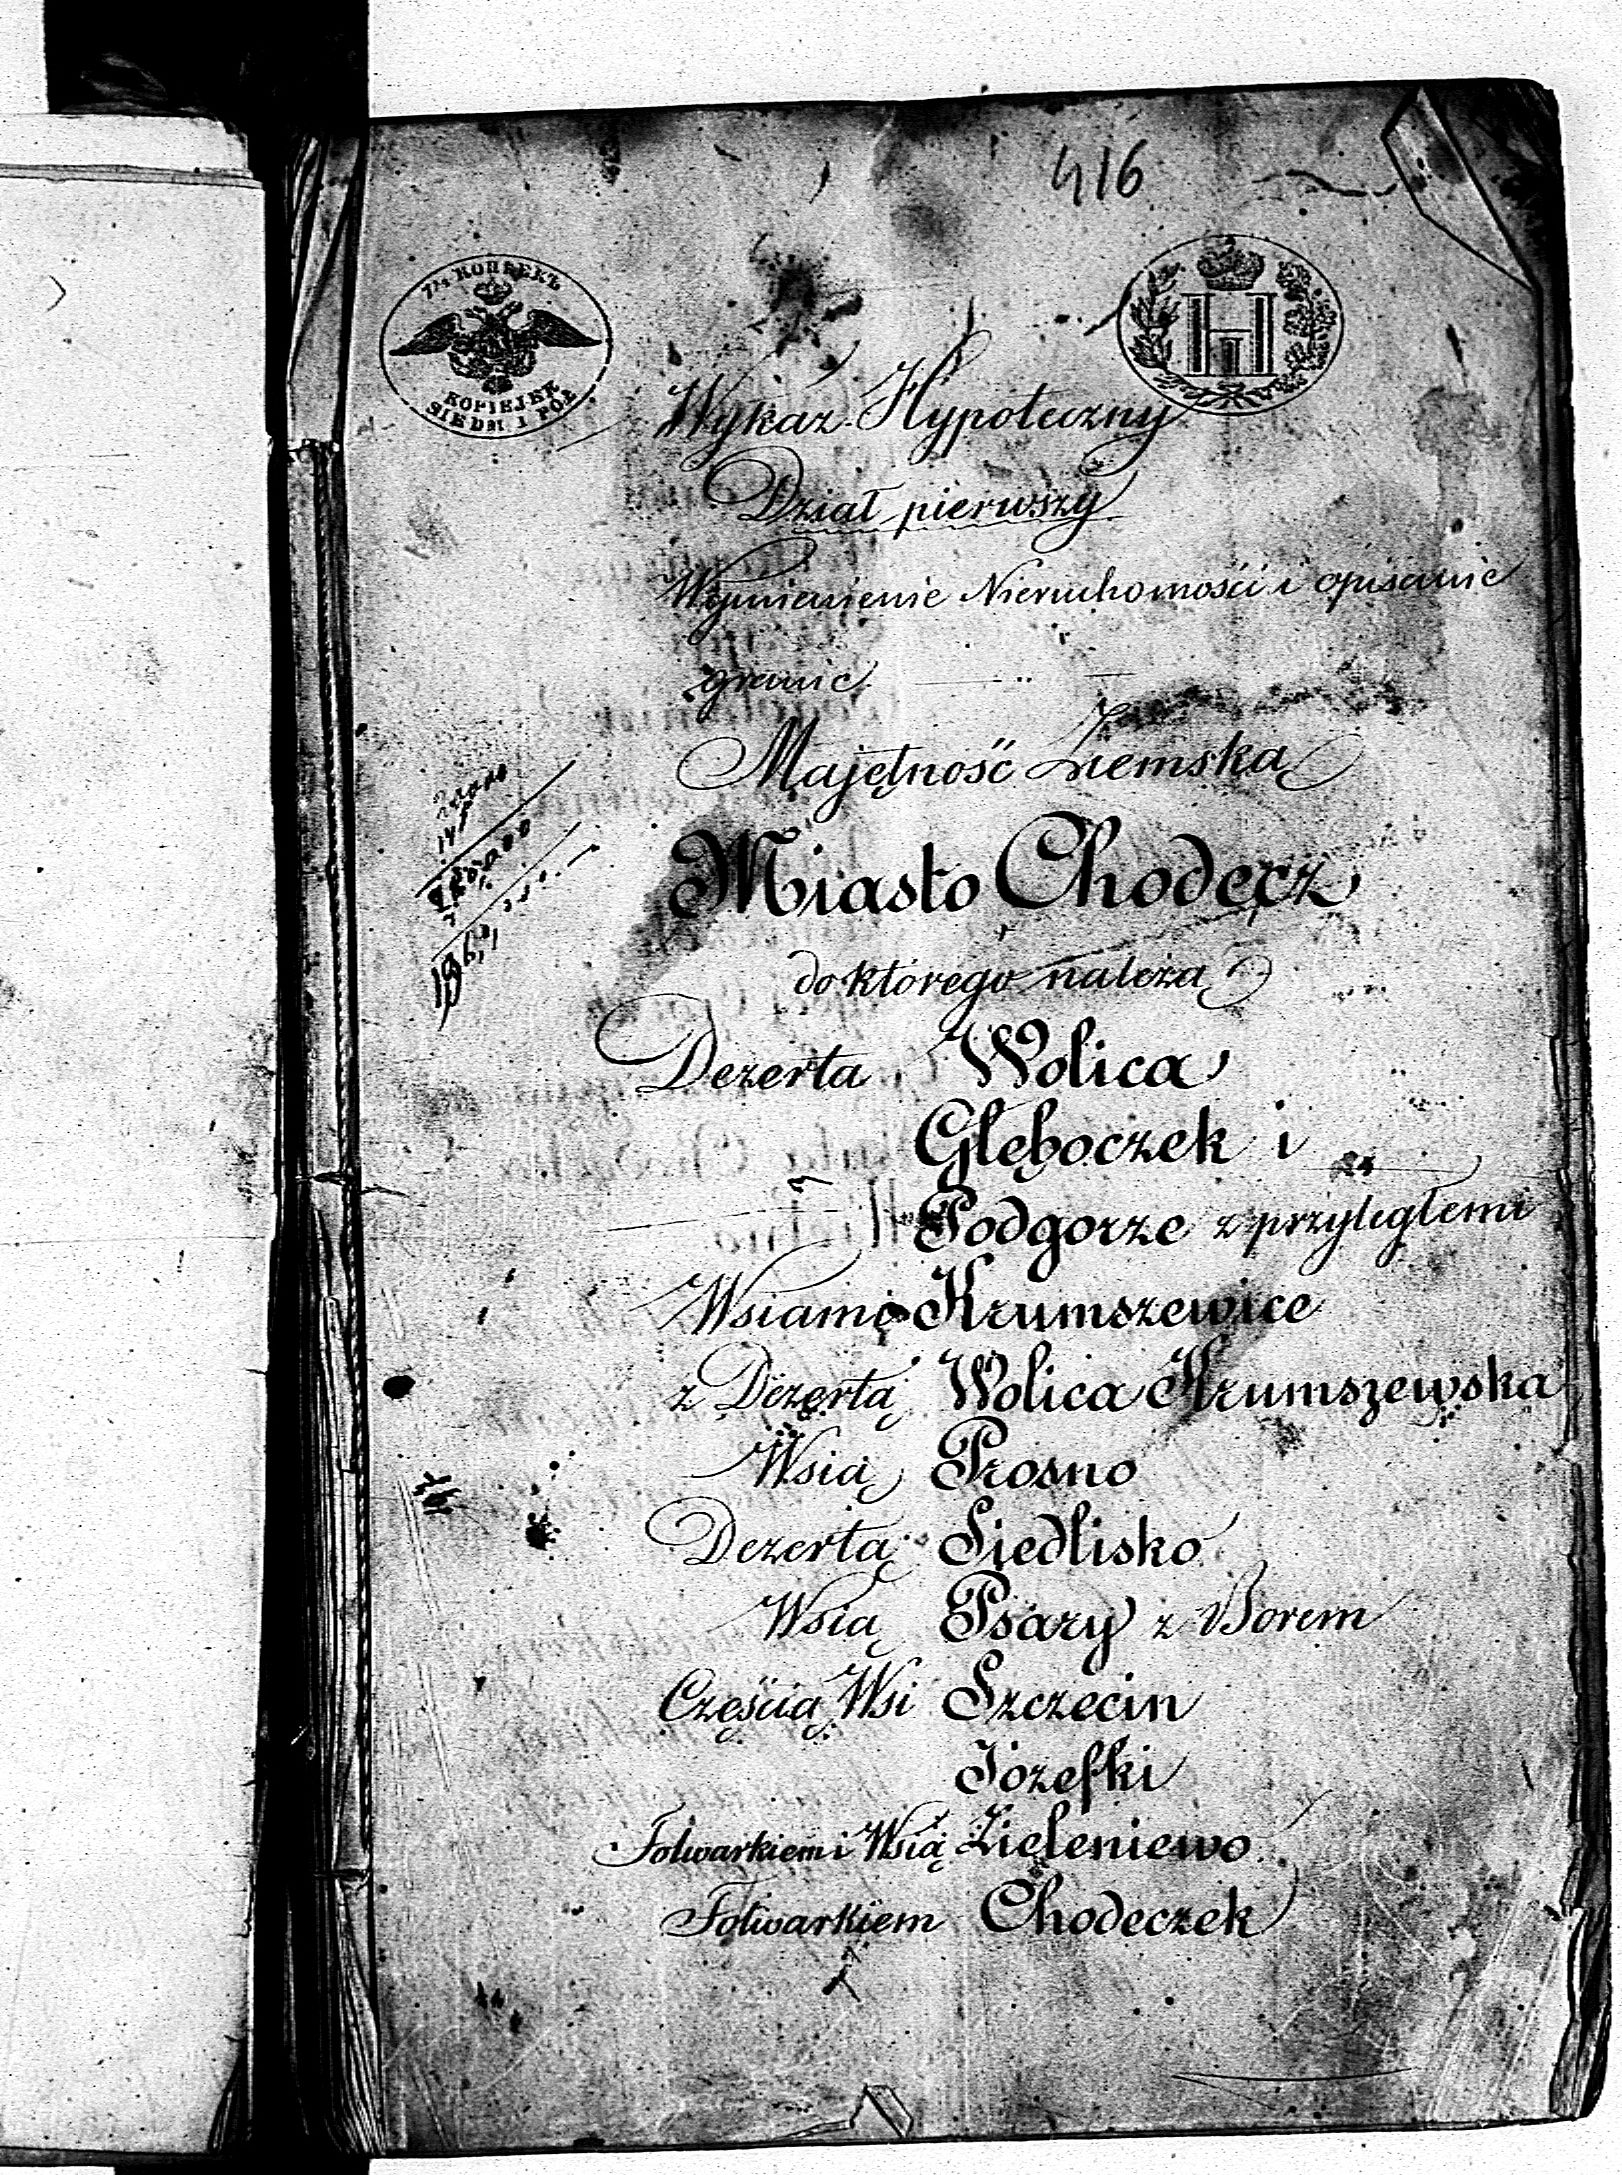 416
7½ КОПѢЕКЪ
KOPIEJEK
SIEDM I PÓŁ
Wykaz Hypoteczny
Dział pierwszy
Wymienienie Nieruchomości i opisanie
granic
Majętność Ziemska
Miasto Chodecz
do którego należą
Dezerta Wolica
Głęboczek i
Podgorze z przyległemi
Wsiami Krumszewice
z Dezertą Wolica Krumszewska
Wsią Prosno
Dezertą Siedlisko
Wsią Psary z Borem
Częścią Wsi Szczecin
Józefki
Folwarkiem i Wsią Zieleniewo
Folwarkiem Chodeczek